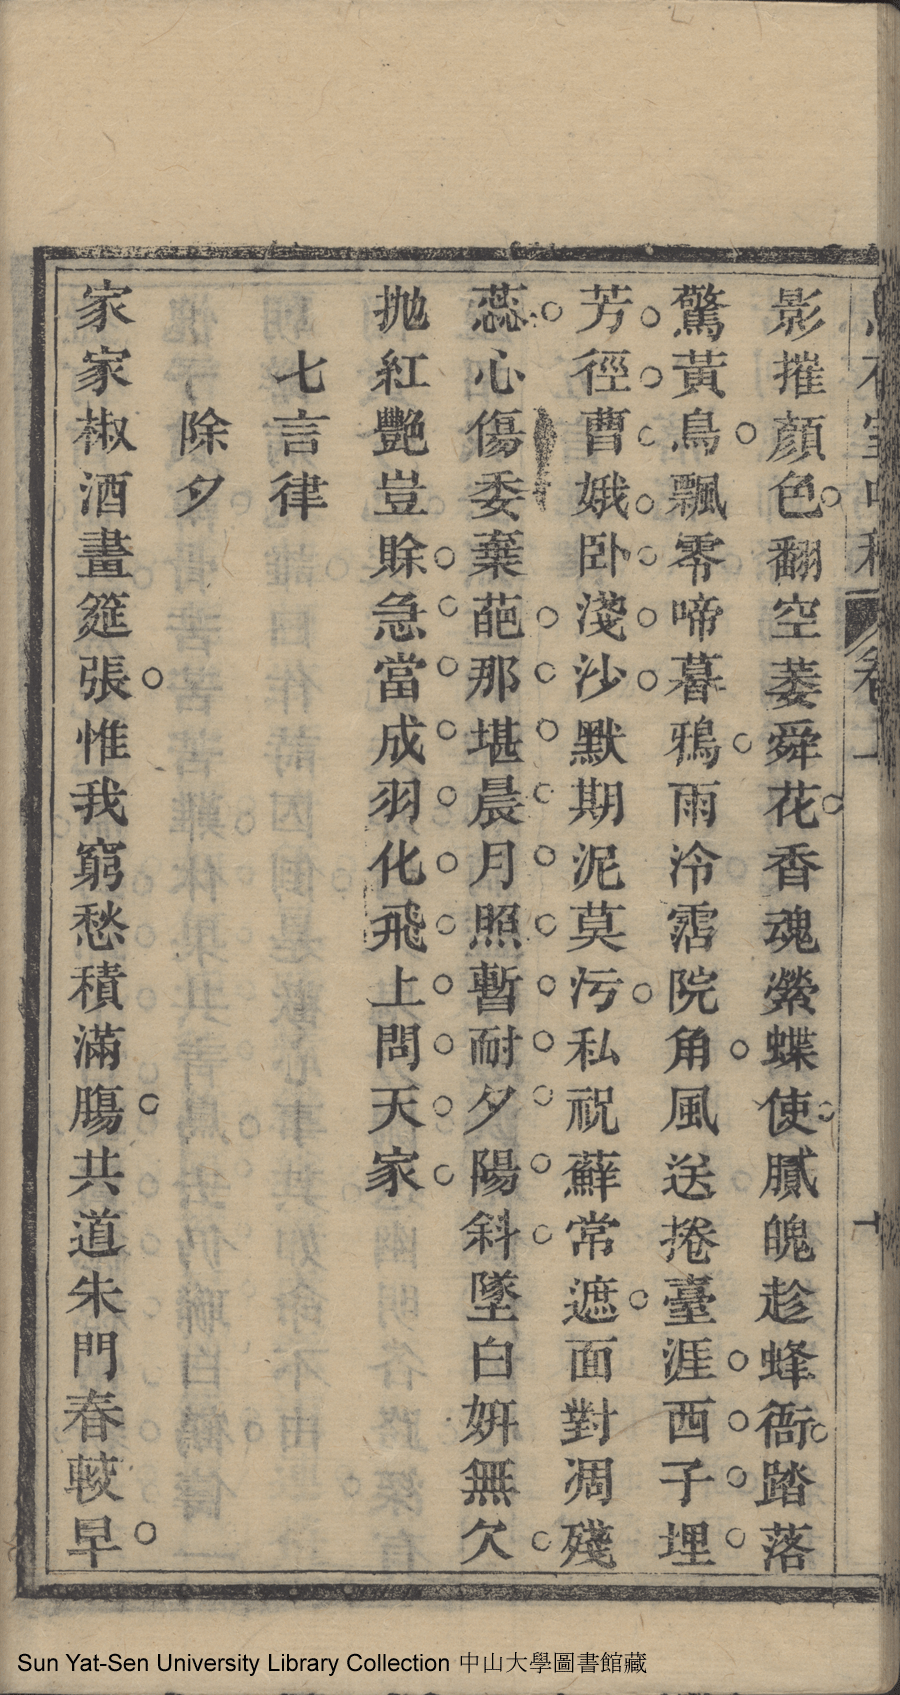 影摧顏色翻空萎舜花香魂縈蝶使膩魄趁蜂衙踏落
驚黃鳥飄零啼暮鴉雨冷霑院角風送捲臺涯西子埋
芳徑曹娥卧淺沙默期泥莫污私祝蘚常遮面對凋殘
蕊心傷委棄葩那堪晨月照暫耐夕陽斜墜白妍無欠
拋紅艷豈賒急當成羽化飛上問天家
七言律
除夕
家家椒酒畫筵張惟我窮愁積滿腸共道朱門春較早
Sun Yat-Sen University Library Collection 中山大學圖書館藏